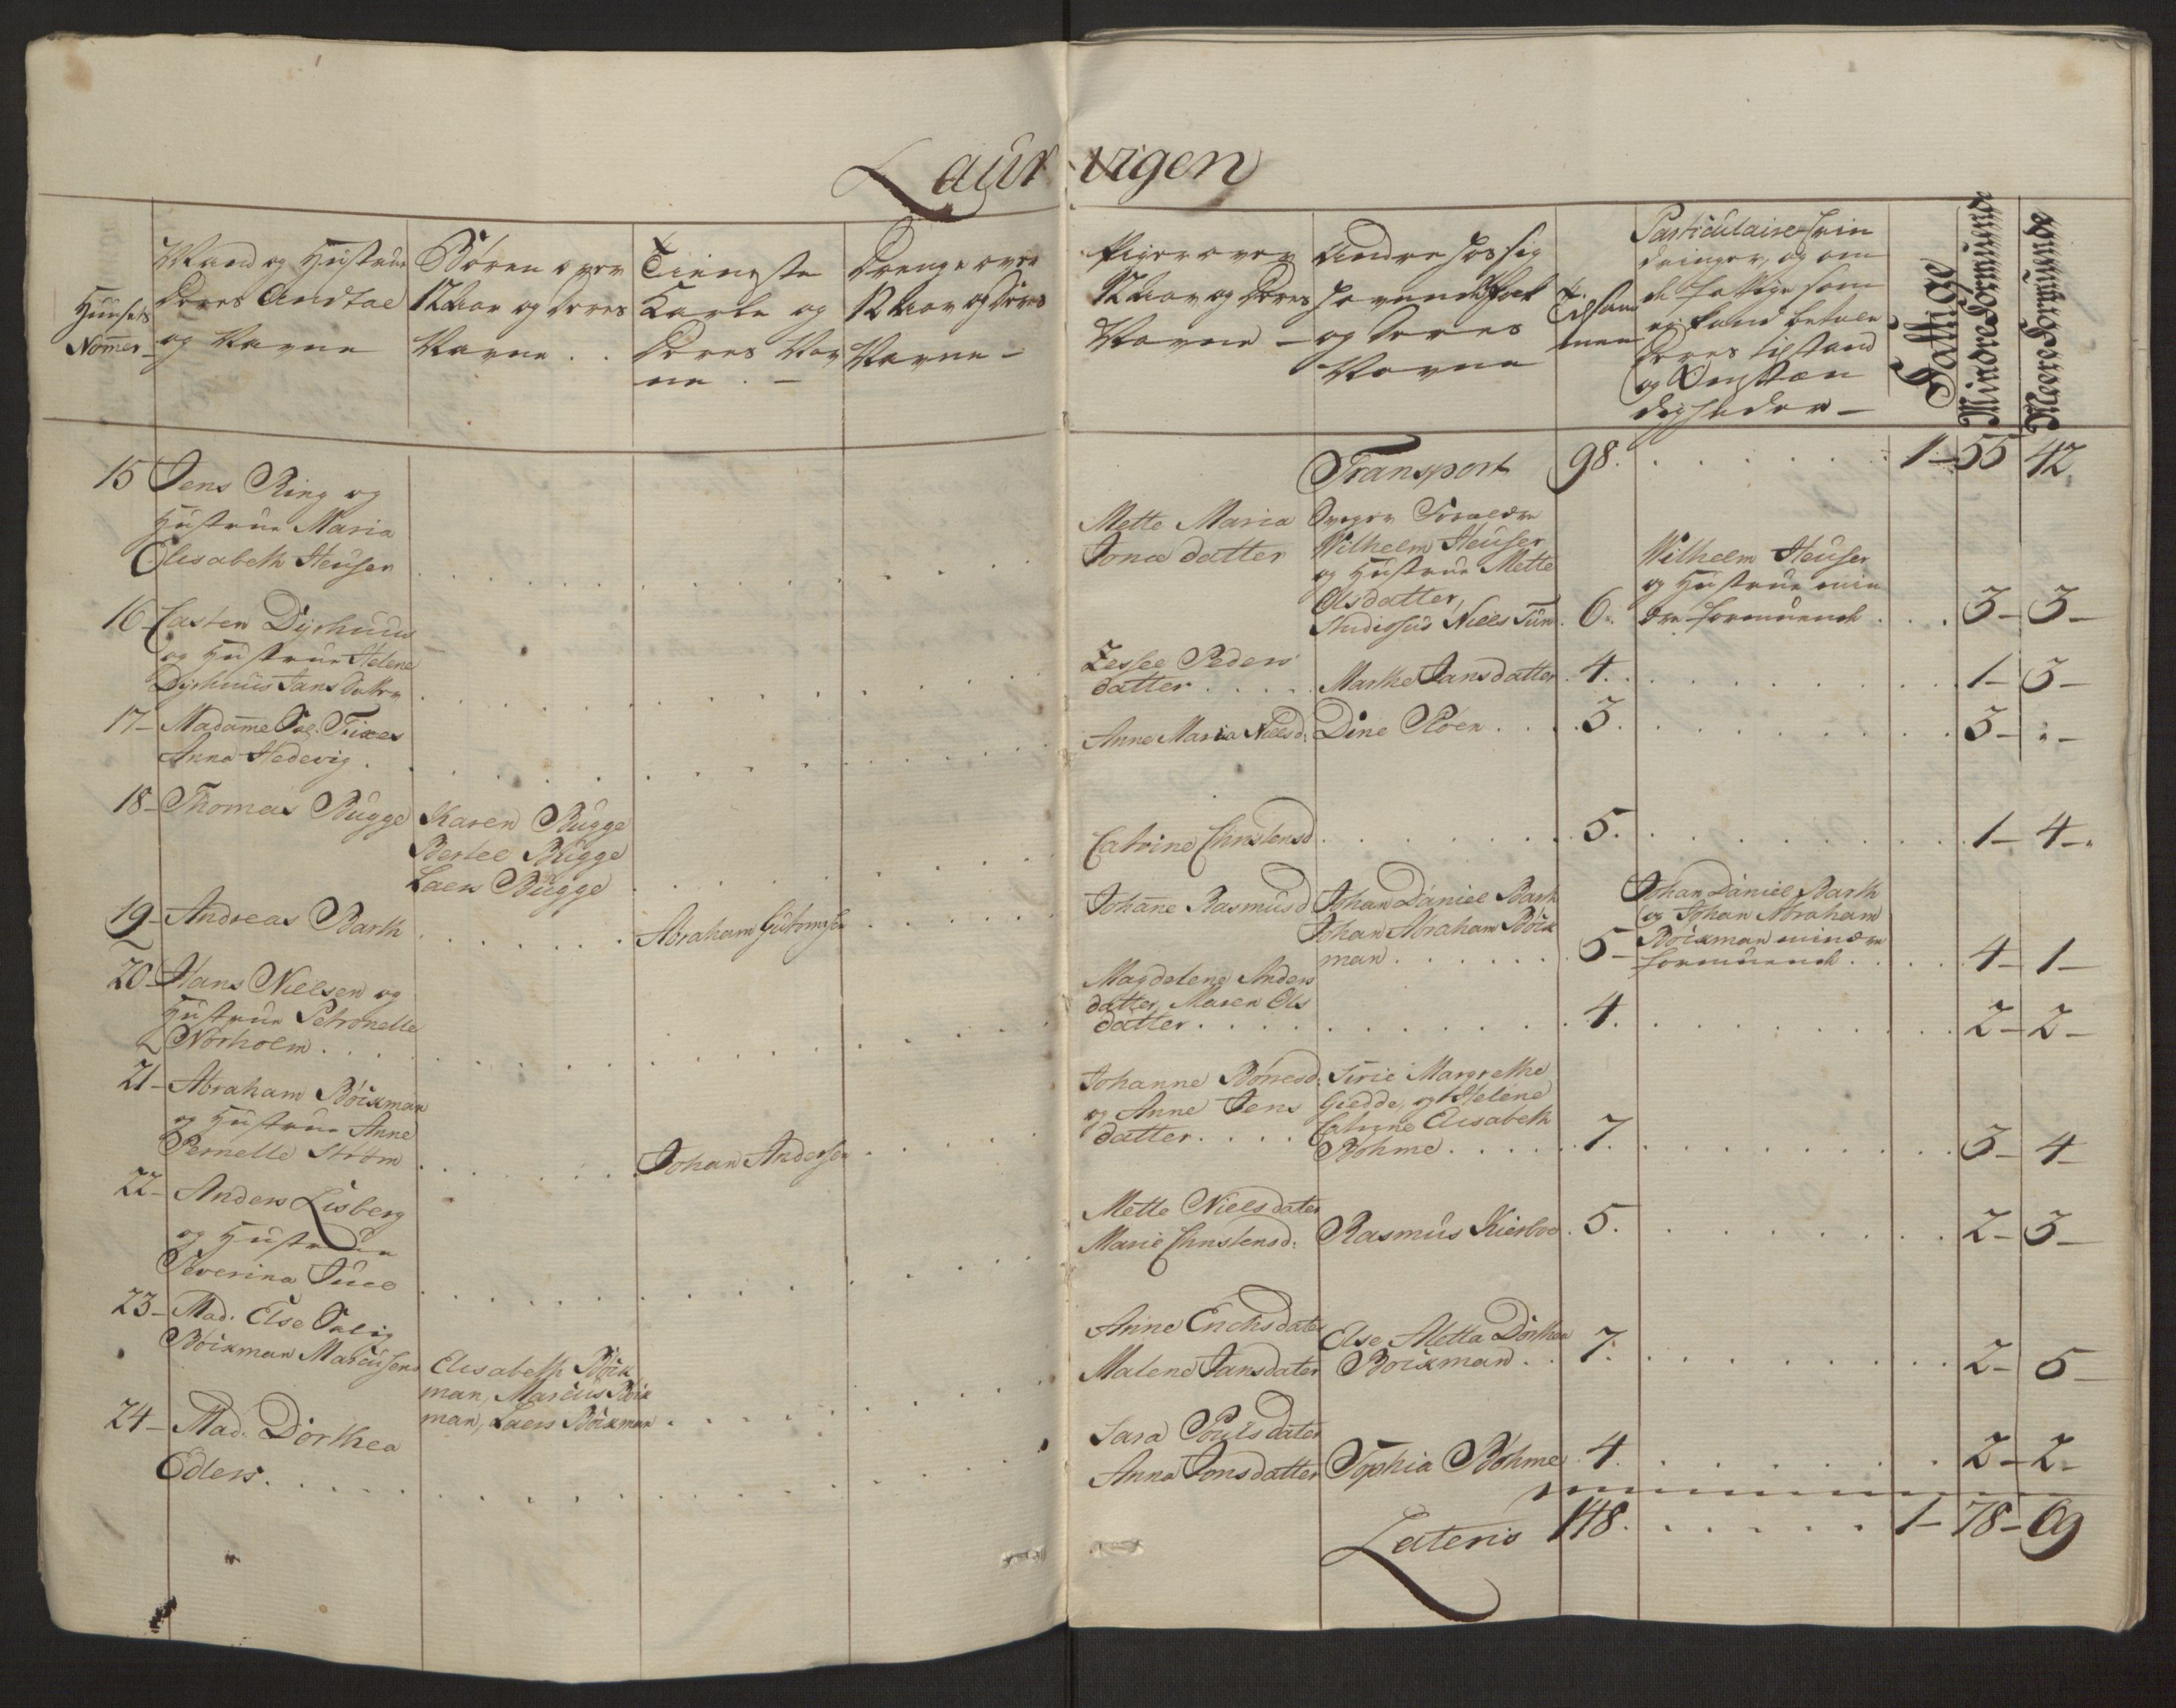 Laur-vigen
Huusets
Nomer
Mand og Hustrue
Deres Andtal
og Navne
Børen over
12 Aar og deres
Navne . .
Tieneste
Karle og
Deres Nav
ne . -
Drenge over
12 Aar og Deres
Navne -
Piger over
12 Aar og Deres
Navne -
Andre hos sig
havende Folk
og Deres
Navne
Tilsam
men
Particulaire Erin
dringer, og om
de fattige som
ej kand betale
Deres tilstand
og Omstæn
digheder -
Fattige
Mindre Formuende
Meere Formuende
Transport 98. 1 - 55 42
15 Jens Ring og
Hustrue Maria
Elisabeth Heuser
Mette Maria
Jonæ datter
Sviger Forældre
Wilhelm Heuser
og Hustrue Mette
Olsdatter,
Studiosus Niels Tün
6.
Wilhelm Heuser
og Hustrue min
dre formuende . . .
3 - 3 -
16 - Casten Dijrhuus
og Hustrue Helene
Dijrhuus Jans Datter
Zeslee Peders
datter . . . .
Marthe Jansdatter
4. 1 - 3 -
17 - Madame Sal. Fixes
Anna Hedevig .
Anne Maria Nielsd:
Dine Ploen . . .
3. 3 - : -
18 - Thomas Bugge
Karen Bugge
Bertel Bugge
Laers Bugge
Catrine Christensd
5. 1 - 4 -
19 - Andreas Barth
Abraham Gutormsen
Johane Rasmusd
Johan Daniel Barth
Johan Abraham Böck
man . . . . .
5 -
Johan Daniel Barth
og Johan Abraham
Böckman mindre
formuende . .
4 - 1 -
20 - Hans Nielsen og
Hustrue Petronelle
Nörholm . . .
Magdelene Anders
datter, Maren Ols
datter . . . .
4. 2 - 2 -
21 - Abraham Böckman
og Hustrue Anne
Pernelle Ström
Johan Andersen
Johanne Börresd:
og Anne Jens
datter . . . .
Sirie Margrethe
Giedde, og Helene
Catrine Elisabeth
Böhme . . . .
7. 3 - 4 -
22 - Anders Lisberg
og Hustrue
Severina Juel
Mette Nielsdater
Marie Christensd:
Rasmus Kierboe
5. 2 - 3 -
23 - Mad. Else Salig
Böckman Marcusens
Elisabeth Böck
man, Marcus Böck
man, Laers Böckman
Anne Erichsdater
Malene Jansdater
Else Aletta Dorthea
Böckman . .
7. 2 - 5 -
24 - Mad. Dorthea
Eders . . .
Sara Poulsdater
Anna Jonsdatter
Sophia Böhme
4. 2 - 2 -
Lateris 148. 1 - 78 - 69